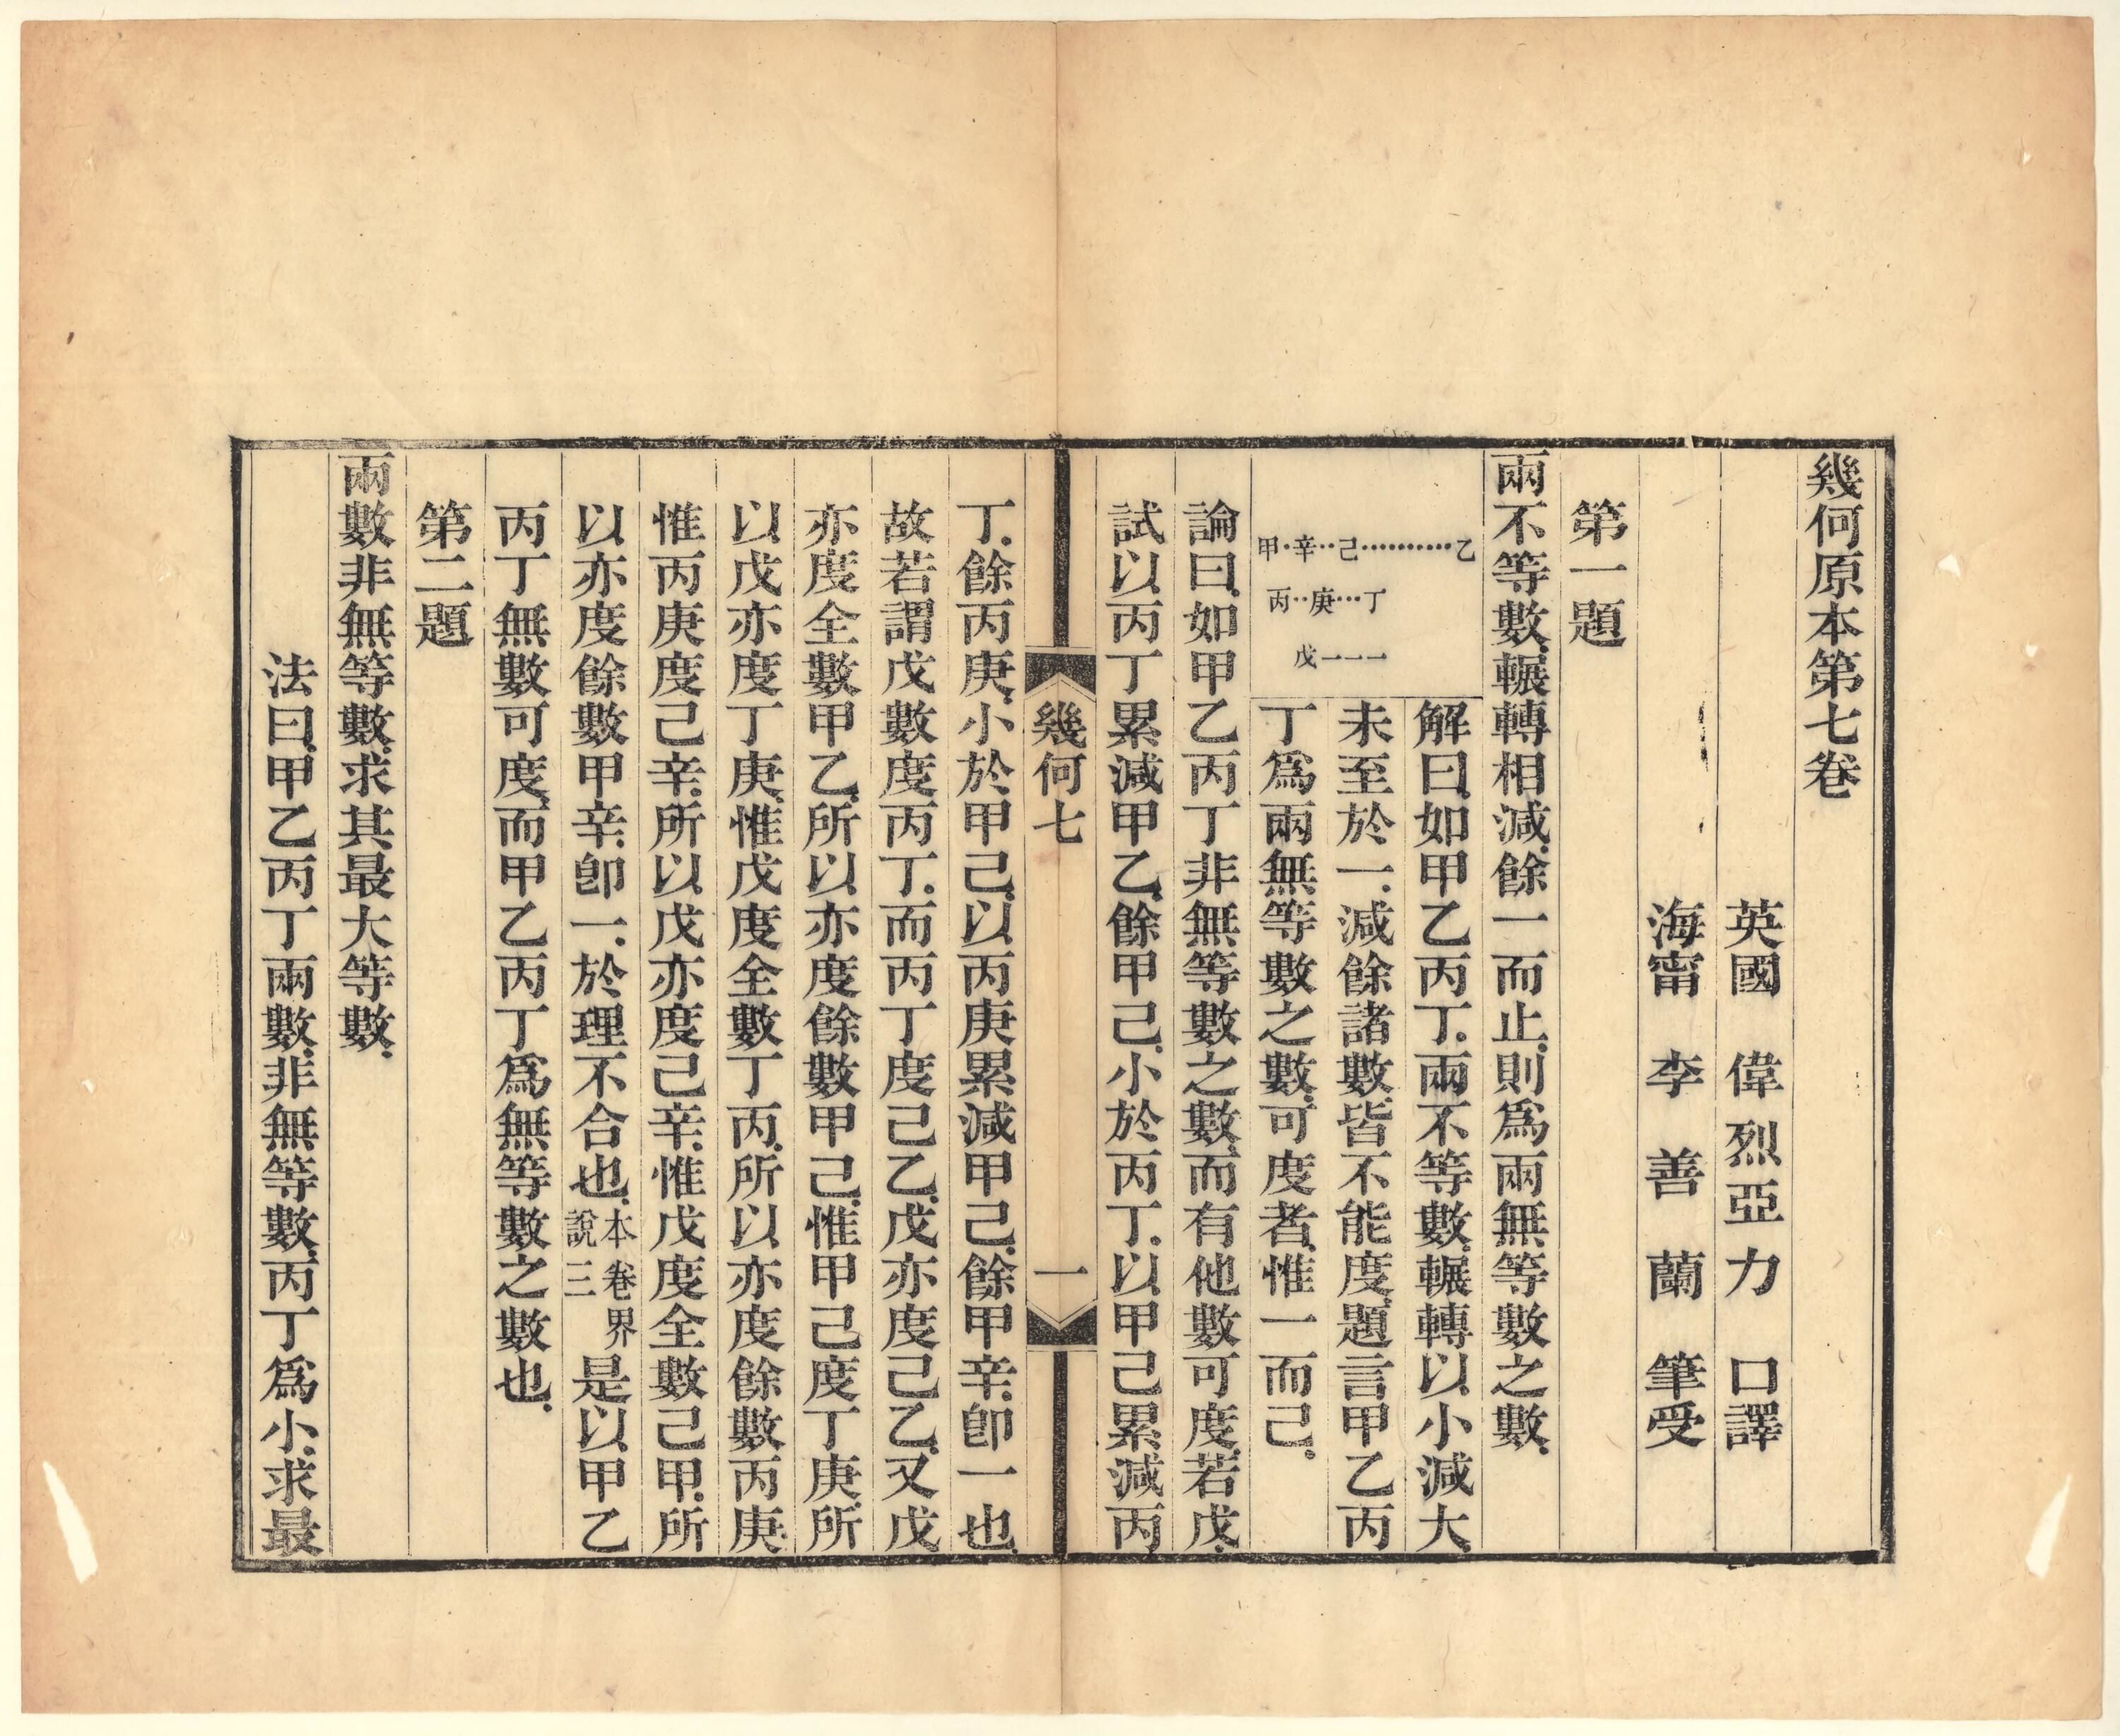 幾何原本第七卷
英國 偉烈亞力 口譯
海甯 李善蘭 筆受
第一題
兩不等數、輾轉相減、餘一而止、則爲兩無等數之數、
甲·辛··己··········乙
丙··庚···丁
戊一一一
解曰、如甲乙丙丁、兩不等數、輾轉以小減大、
未至於一、減餘諸數、皆不能度、題言甲乙丙
丁爲兩無等數之數、可度者、惟一而己、
論曰、如甲乙丙丁非無等數之數、而有他數可度、若戊、
試以丙丁累減甲乙、餘甲己、小於丙丁、以甲己累減丙
幾何七
一
丁、餘丙庚、小於甲己、以丙庚累減甲己、餘甲辛、卽一也、
故若謂戊數度丙丁、而丙丁度己乙、戊亦度己乙、又戊
亦度全數甲乙、所以亦度餘數甲己、惟甲己度丁庚、所
以戊亦度丁庚、惟戊度全數丁丙、所以亦度餘數丙庚、
惟丙庚度己辛、所以戊亦度己辛、惟戊度全數己甲、所
以亦度餘數甲辛、卽一、於理不合也、本卷界說三是以甲乙
丙丁無數可度、而甲乙丙丁爲無等數之數也、
第二題
兩數非無等數、求其最大等數、
法曰、甲乙丙丁兩數、非無等數、丙丁爲小、求最